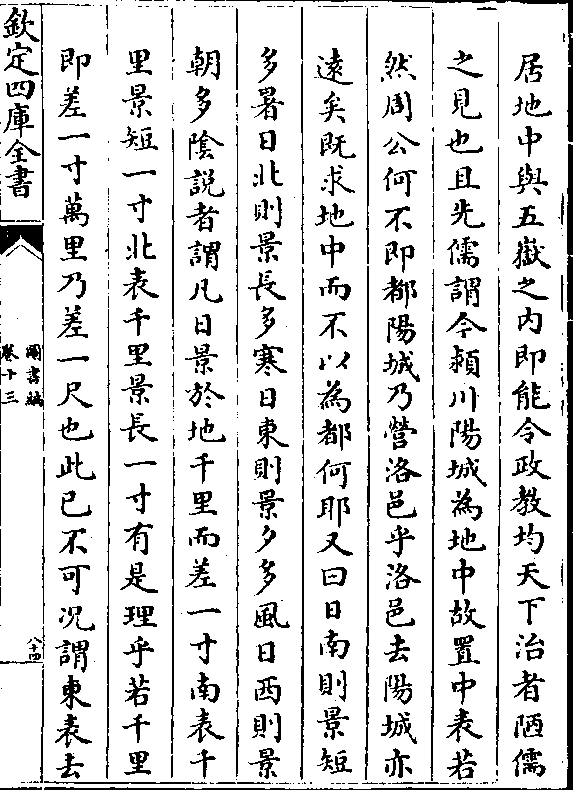 居地中與五嶽之内即能令政教均天下治者陋儒
之見也且先儒謂今潁川陽城為地中故置中表若
然周公何不即都陽城乃營洛邑乎洛邑去陽城亦
遠矣既求地中而不以為都何耶又曰日南則景短
多暑日北則景長多寒日東則景夕多風日西則景
朝多隂説者謂凡日景於地千里而差一寸南表千
里景短一寸北表千里景長一寸有是理乎若千里
即差一寸萬里乃差一尺也此已不可况謂東表去
欽定四庫全書
圖書編
卷十三
八十四